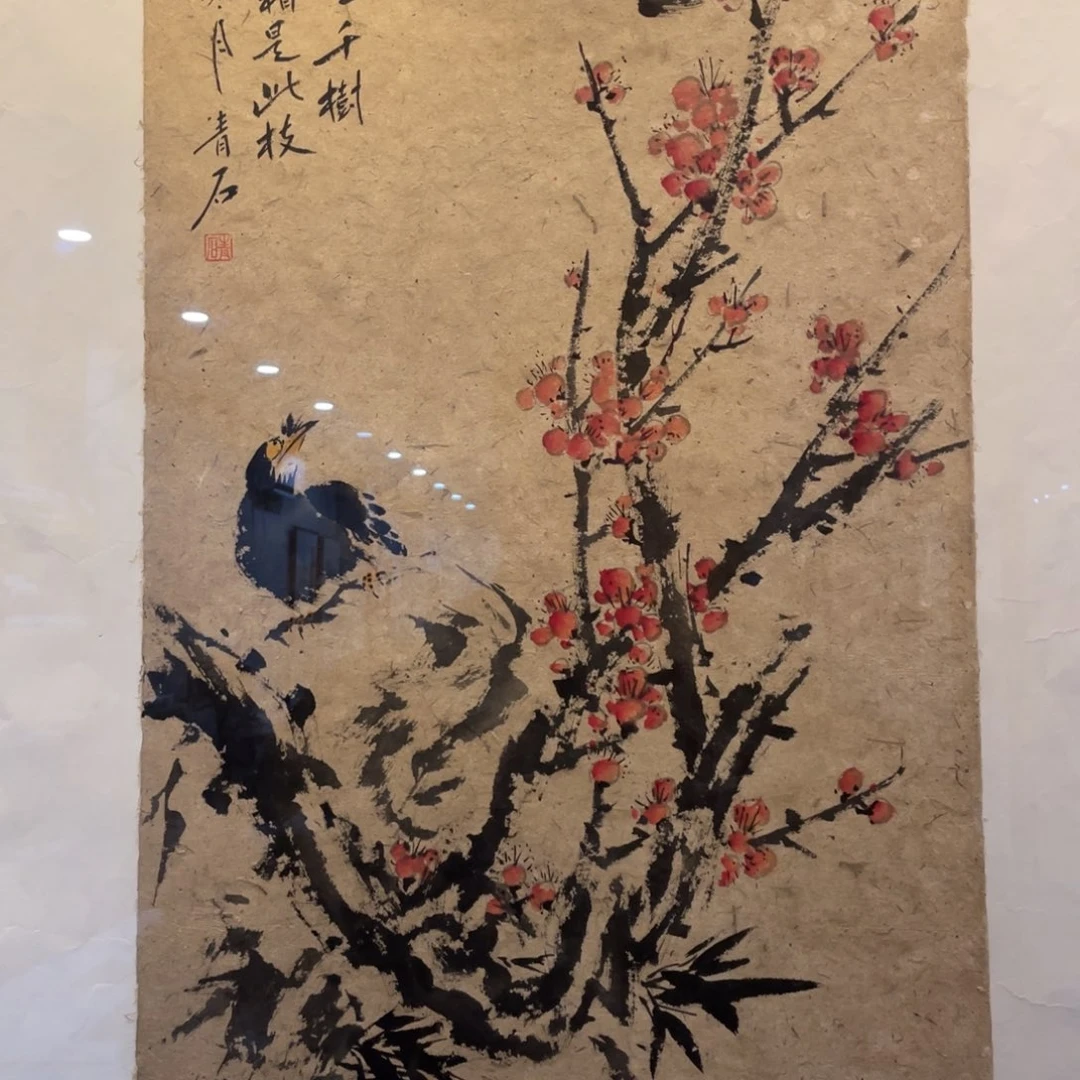 千樹
是此枝
月 青石
青石